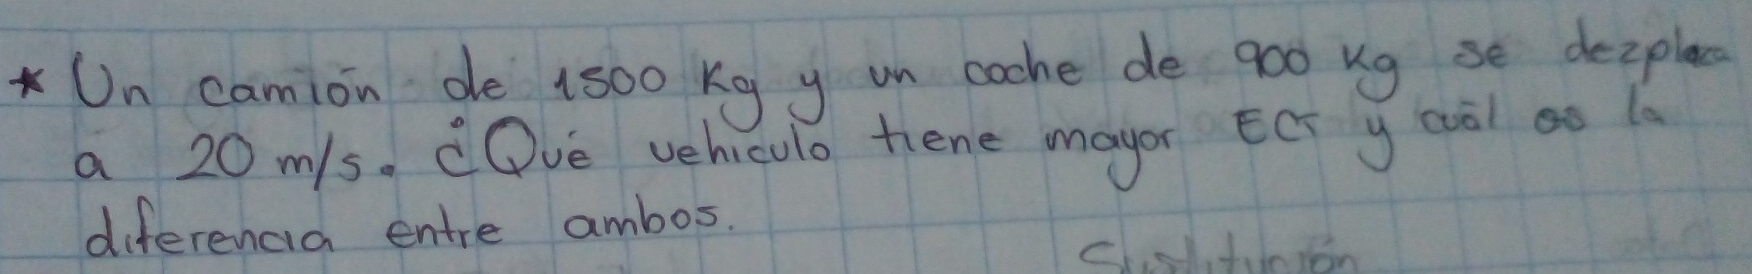 * Un camión de 1500 Kg y un coche de 900 Kg se dezplaza
a 20 m/s. ¿Qué vehiculo tiene mayor EC y cuál es la
diferencia entre ambos.
Sustitución